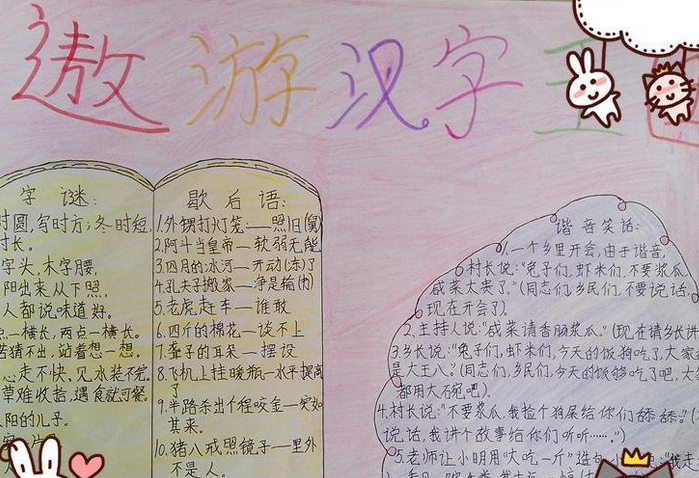 遨游汉字王
字谜:
时圆,写时方;冬时短,
时长。
字头,木字腰,
阳出来从下照,
人都说味道好。
一横长,两点一横长。
苦猜不出,站着想一想。
走不快,见水装不完,
草难收拾,遇食就可餐。
阳的儿子。
歇后语:
1.外甥打灯笼——照旧(舅)
2.阿斗当皇帝——软弱无能
3.四月的冰河——开动(冻)了
4.孔夫子搬家——净是输(书)
5.老虎赶车——谁敢
6.四斤的棉花——谈不上
7.聋子的耳朵——摆设
8.飞机上挂暖瓶—水平提高
了
9.半路杀出个程咬金—突如
其来。
10.猪八戒照镜子—里外
不是人。
谐音笑话:
1.一个乡里开会,由于谐音,
村长说:“兔子们,虾米们,不要浆瓜,
咸菜太贵了。”(同志们,乡民们,不要说话,
现在开会了)
2.主持人说:“咸菜请香肠浆瓜。”(现在请乡长讲
3.乡长说:“兔子们,虾米们,今天的饭狗吃了,大家
是大王八。”(同志们,乡民们,今天的饭够吃了吧,大
都用大碗吧)
4.村长说:“不要浆瓜,我捡个狗屎给你们舔舔。”(
说话,我讲个故事给你们听听……。”)
5.老师让小明用“大吃一斤”造句,小